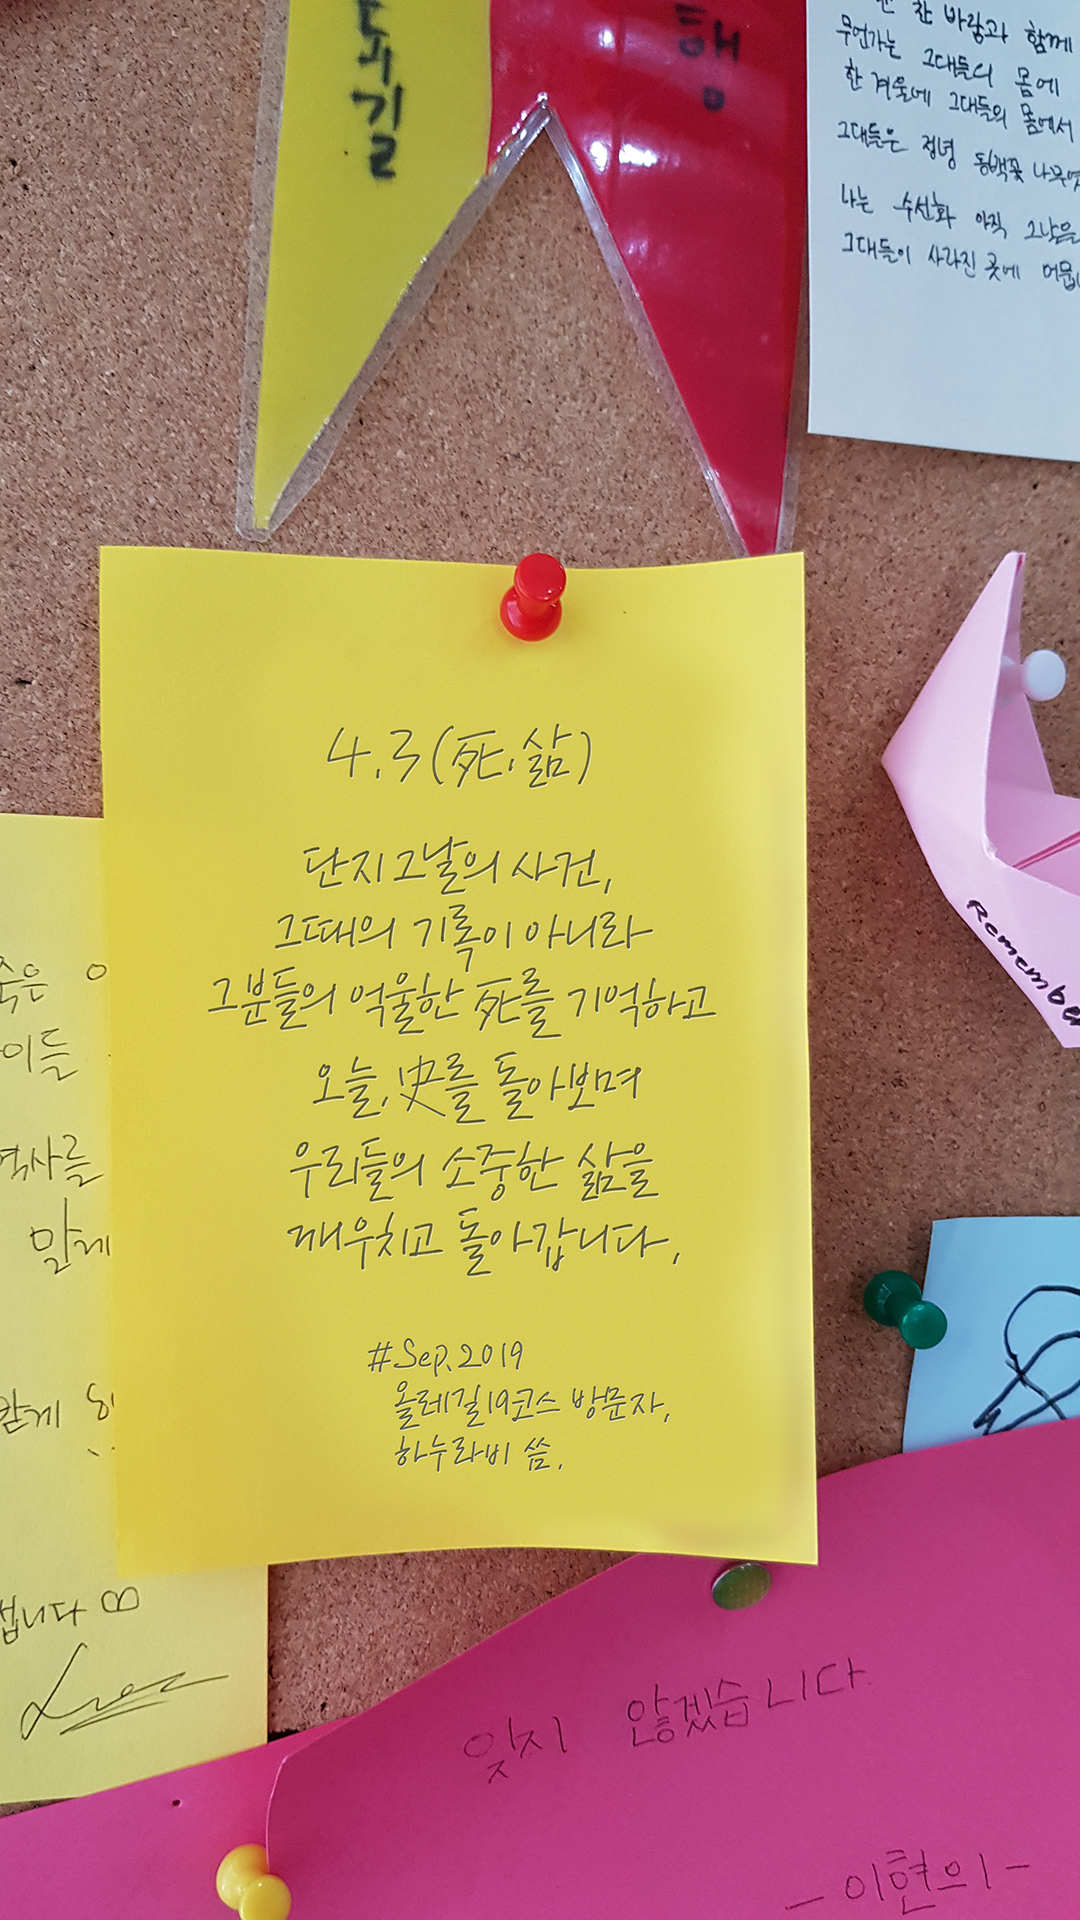 길
행
찬 바람과 함께
무언가는 그대들의 몸에
한 겨울에 그대들의 몸에서
그대들은 정녕 동백꽃
나는 수선화 아직
그대들이 사라진 곳에
4.3(死.삶)
단지 그날의 사건,
그때의 기록이 아니라
그분들의 억울한 死를 기억하고
오늘, 史를 돌아보며
우리들의 소중한 삶을
깨우치고 돌아갑니다.
#Sep.2019
올레길19코스 방문자,
하누라비 씀.
Remember
죽은
이들
역사를
말
니다
잊지 않겠습니다.
- 이현의 -